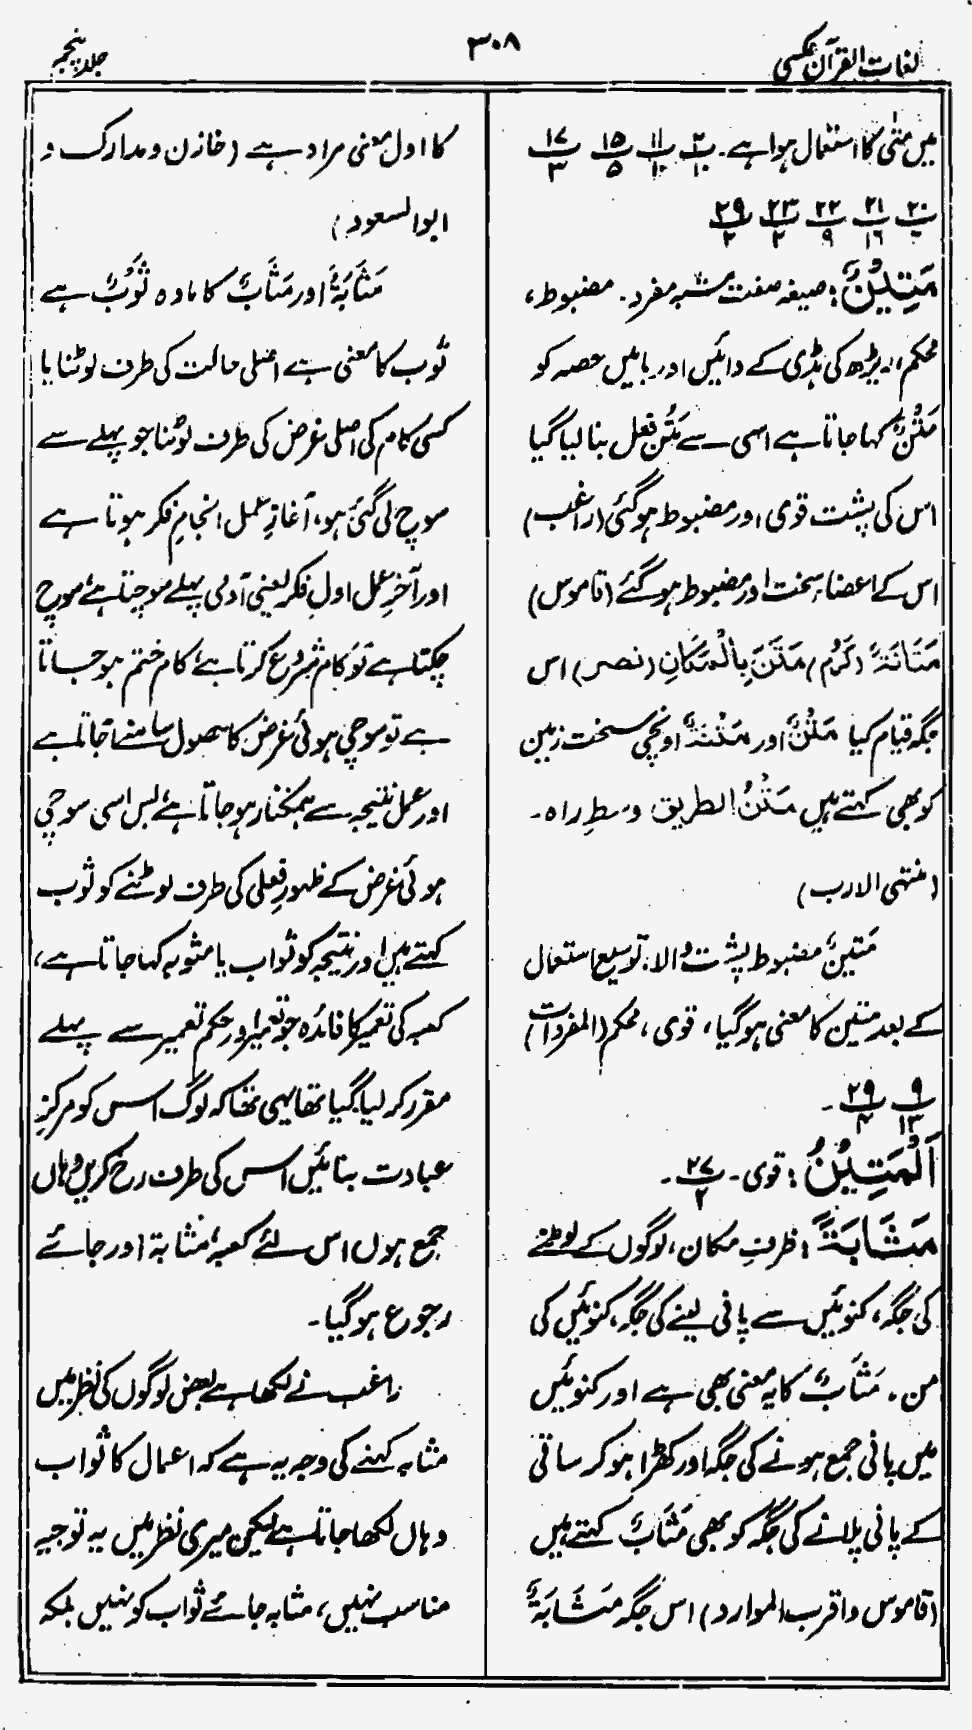 لغات القرآن عکسی
۳۰۸
جلد پنجم
میں متٰی کا استعمال ہوا ہے۔ ۲/۱۰ ۱۱/۱۰ ۱۵/۵ ۱۷/۳
۲۰/ ۲۱/۱۶ ۲۲/۹ ۲۳/۲ ۲۹/۲
مَتِیْنٌ: صیغہ صفت مشبہ مفرد۔ مضبوط،
محکم، ریڑھ کی ہڈی کے دائیں اور بائیں حصہ کو
مَتْنٌ کہا جاتا ہے اسی سے مَتُنَ فعل بنا لیا گیا
اس کی پشت قوی اور مضبوط ہوگئی (راغب)
اس کے اعضاء سخت اور مضبوط ہوگئے (قاموس)
مَتَانَۃً (کَرُمَ) مَتَنَ بِالْمَکَانِ (نصر) اس
جگہ قیام کیا مَتْنٌ اور مَتْنَۃٌ اونچی سخت زمین
کو بھی کہتے ہیں مَتْنُ الطریق وسطِ راہ۔
(منتہی الارب)
مَتینٌ مضبوط پشت والا، توسیع استعمال
کے بعد متین کا معنی ہوگیا، قوی، محکم (المفردات)
۹/۱۳ ۲۹/۴ ۔
اَلْمَتِیْنُ: قوی۔ ۲۷/۲ ۔
مَثَابَۃً: ظرفِ مکان، لوگوں کے لوٹنے
کی جگہ، کنوئیں سے پانی لینے کی جگہ، کنوئیں کی
من۔ مَثَابٌ کا یہ معنی بھی ہے اور کنوئیں
میں پانی جمع ہونے کی جگہ اور کھڑا ہو کر ساقی
کے پانی پلانے کی جگہ کو بھی مَثَابٌ کہتے ہیں
(قاموس و اقرب الموارد) اس جگہ مَثَابَۃً
کا اول معنی مراد ہے (خازن و مدارک و
ابو السعود)
مَثَابَۃٌ اور مَثَابٌ کا مادہ ثَوْبٌ ہے
ثوب کا معنی ہے اصلی حالت کی طرف لوٹنا یا
کسی کام کی اصلی غرض کی طرف لوٹنا جو پہلے سے
سوچ لی گئی ہو، آغازِ عمل انجامِ فکر ہوتا ہے
اور آخرِ عمل اولِ فکر یعنی آدمی پہلے سوچتا ہے، سوچ
چکتا ہے تو کام شروع کرتا ہے، کام ختم ہو جاتا
ہے تو سوچی ہوئی غرض کا حصول سامنے آجاتا ہے
اور عمل نتیجہ سے ہمکنار ہو جاتا ہے، بس اسی سوچی
ہوئی غرض کے ظہورِ فعلی کی طرف لوٹنے کو ثوب
کہتے ہیں اور نتیجہ کو ثواب یا مثوبہ کہا جاتا ہے،
کعبہ کی تعمیر کا فائدہ جو تعمیر اور حکم تعمیر سے پہلے
مقرر کر لیا گیا تھا یہی تھا کہ لوگ اسس کو مرکزِ
عبادت بنائیں اسس کی طرف رخ کریں وہاں
جمع ہوں اس لئے کعبہ، مثابۃ اور جائے
رجوع ہوگیا۔
راغب نے لکھا ہے بعض لوگوں کی نظر میں
مثابہ کہنے کی وجہ یہ ہے کہ اعمال کا ثواب
وہاں لکھا جاتا ہے لیکن میری نظر میں یہ توجیہ
مناسب نہیں، مثابہ جائے ثواب کو نہیں بلکہ